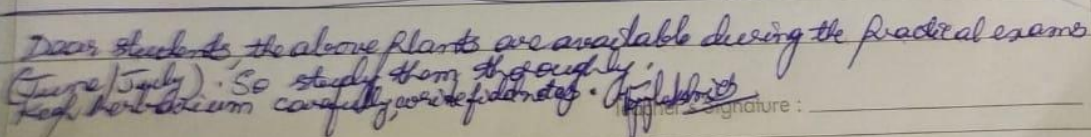 Dear students, the above plants are available during the practical exams
(June/July). So study them thoroughly.
Keep herbarium carefully, write fieldnotes.
Teacher's Signature :